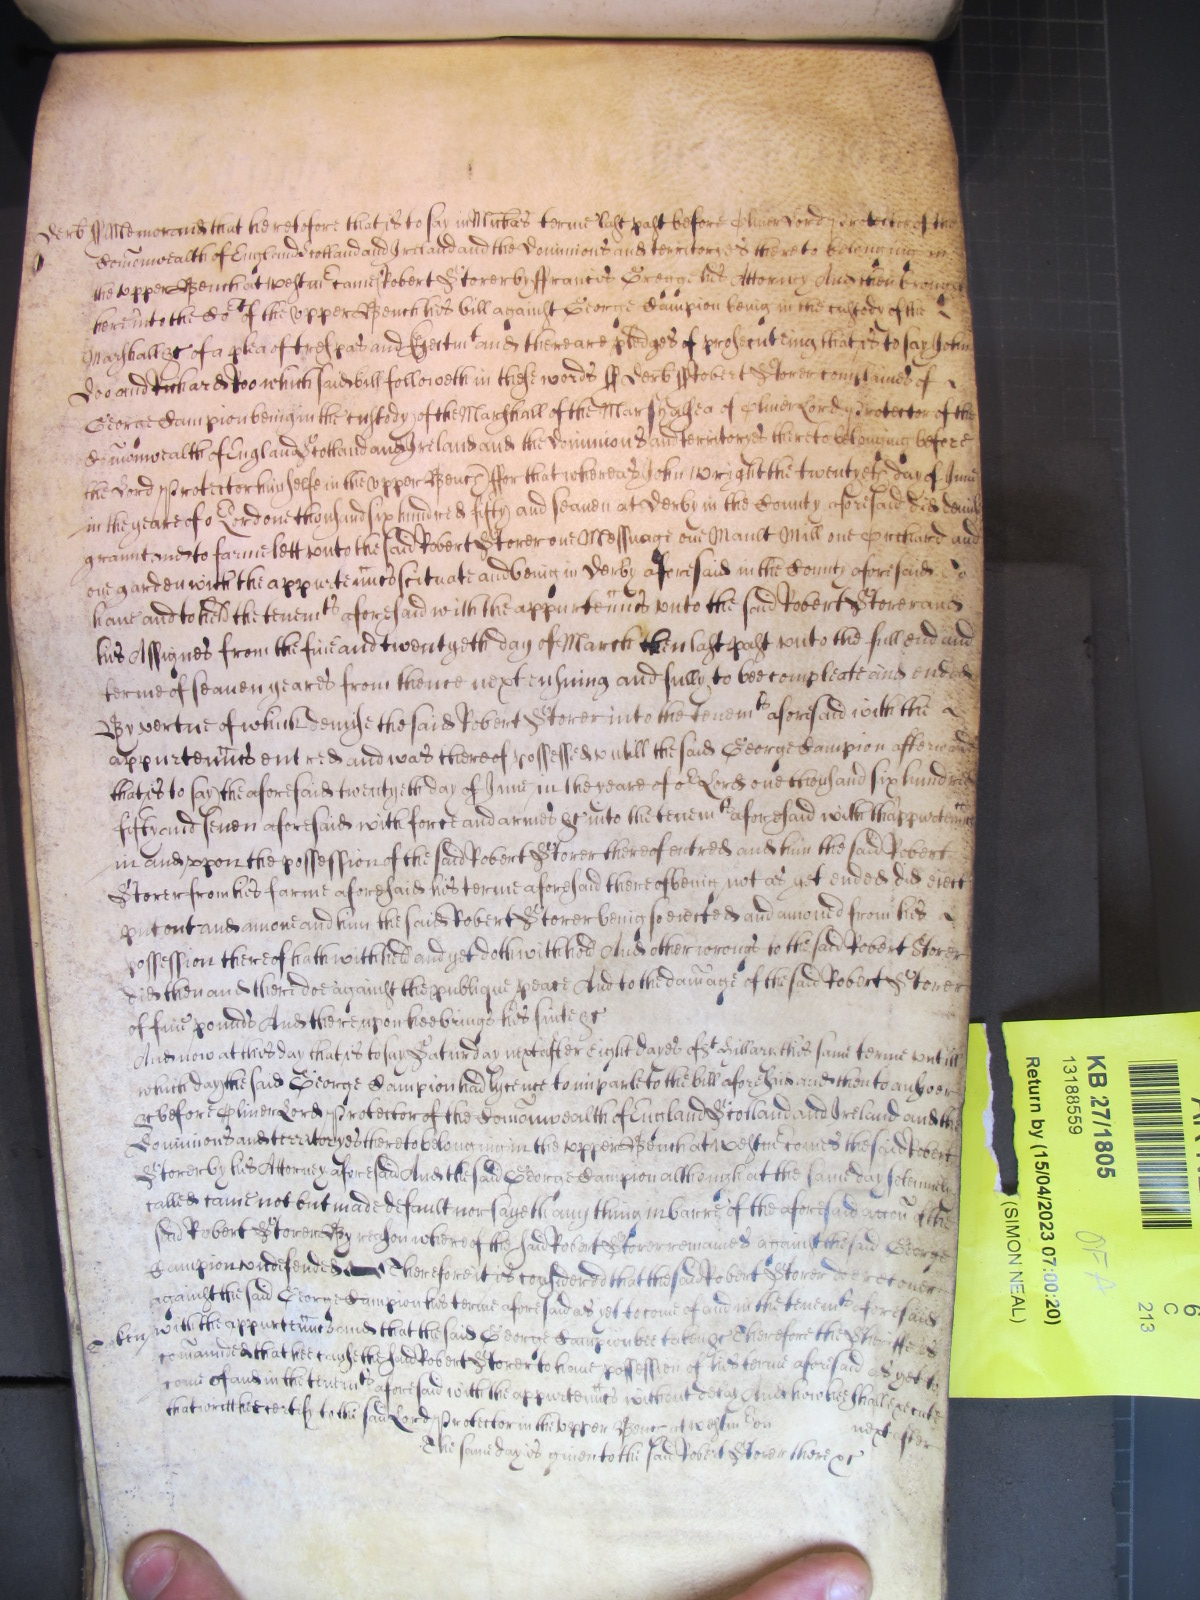 Derb ss Memorand that heretofore that is to say in Michās terme last past before Oliver Lord Protector of the
Comonwealth of England Scotland and Ireland and the Dominions and territoryes thereto belonging in
the upper Bench at Westm̄ came Robert Storer by Francis Gregge his Attorney And then brought
here into the Cort of the Upper Bench his bill against George Sampion being in the custody of the
Marshall &c of a plea of trespas and Eiectmt and there are pledges of prosecuteing that is to say John
Doo and Richard Roo which said bill followeth in these words ss Derb ss Robert Storer complaines of
George Sampion being in the custody of the Marshall of the Marshalsea of Oliver Lord Protector of the
Comonwealth of England Scotland and Ireland and the Dominions and territoryes thereto belonging before
the Lord Protector himselfe in the Upper Bench For that whereas John Wright the twentyeth day of June
in the yeare of or Lord one thousand six hundred fifty and seaven at Derby in the County aforesaid did demise
graunt and to farme lett unto the said Robert Storer one Messuage one Mault Mill one Orchard and
one garden with the appurtenn̄ces scituate and being in Derby aforesaid in the County aforesaid To
have and to hold the tenemts aforesaid with the appurtenn̄ces unto the said Robert Storer and
his Assignes from the five and twentyeth day of March then last past unto the full end and
terme of seaven yeares from thence next ensuing and fully to bee compleate and ended
By vertue of which demise the said Robert Storer into the tenemts aforesaid with the
appurtenn̄ces entred and was thereof possessed untill the said George Sampion afterwards
that is to say the aforesaid twentyeth day of June in the yeare of or Lord one thousand six hundred
fifty and seven aforesaid with force and armes &c into the tenemts aforesaid with thappurtenn̄ces
in and uppon the possession of the said Robert Storer thereof entred and him the said Robert
Storer from his farme aforesaid his terme aforesaid thereof being not as yet ended did eiect
put out and amove and him the said Robert Storer being so eiected and amoved from his
possession thereof hath withheld and yet doth withhold And other wrongs to the said Robert Storer
did then and there doe against the publique peace And to the damage of the said Robert Storer
of five pounds And thereupon hee brings his suite &c
And now at this day that is to say Saturday next after eight dayes of St Hillary this same terme untill
which day the said George Sampion had lycence to imparle to the bill aforesaid and then to answer
&c before Oliver Lord Protector of the Comonwealth of England Scotland and Ireland and the
Dominions and territoryes thereto belonging in the upper Bench at Westm̄ comes the said Robert
Storer by his Attorney aforesaid And the said George Sampion although at the same day solemnely
called came not but made default nor sayeth any thing in barre of the aforesaid accon̄ of the
said Robert Storer By reason whereof the said Robert Storer remaines against the said George
Sampion undefended Therefore it is considered that the said Robert Storer doe recover
against the said George Sampion his terme aforesaid as yet to come of and in the tenemts aforesaid
with the appurtenn̄ces and that the said George Sampion bee taken &c Therefore the Sheriffe is
comanded that hee cause the said Robert Storer to have possession of his terme aforesaid as yet to
come of and in the tenemts aforesaid with the appurtenn̄ces without delay And how hee shall execute
that writt hee certify to the said Lord Protector in the upper Bench at Westm̄ on next after
The same day is given to the said Robert Storer there &c
KB 27/1805
13188559
Return by (15/04/2023 07:00:20)
(SIMON NEAL)
6
C
213